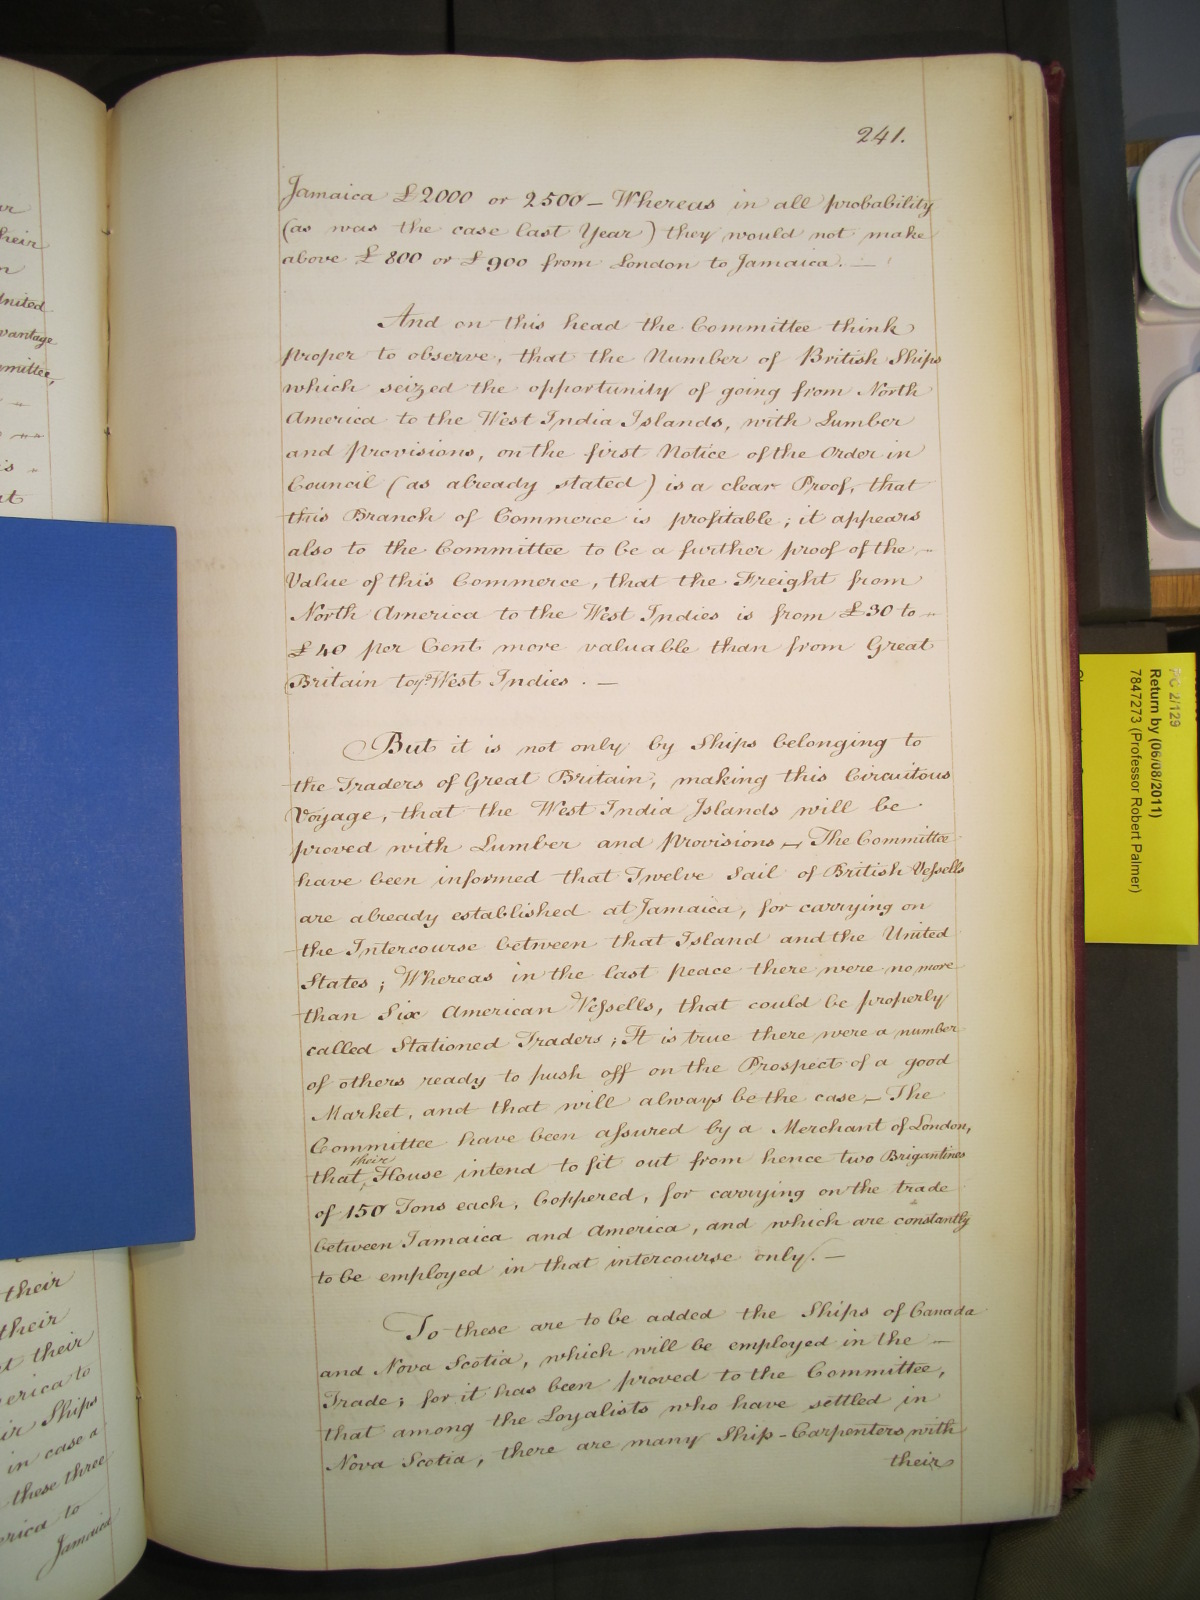 241.
Jamaica £2000 or 2500 — Whereas in all probability
(as was the case last Year) they would not make
above £800 or £900 from London to Jamaica. —
And on this head the Committee think
proper to observe, that the Number of British Ships
which seized the opportunity of going from North
America to the West India Islands, with Lumber
and Provisions, on the first Notice of the Order in
Council (as already stated) is a clear Proof, that
this Branch of Commerce is profitable; it appears
also to the Committee to be a further proof of the
Value of this Commerce, that the Freight from
North America to the West Indies is from £30 to
£40 per Cent more valuable than from Great
Britain to ye West Indies. —
But it is not only by Ships belonging to
the Traders of Great Britain, making this Circuitous
Voyage, that the West India Islands will be
proved with Lumber and Provisions — The Committee
have been informed that Twelve Sail of British Vessells
are already established at Jamaica, for carrying on
the Intercourse between that Island and the United
States; Whereas in the last peace there were no more
than Six American Vessells, that could be properly
called Stationed Traders; It is true there were a number
of others ready to push off on the Prospect of a good
Market, and that will always be the case — The
Committee have been assured by a Merchant of London,
their
that, House intend to fit out from hence two Brigantines
of 150 Tons each, Coppered, for carrying on the trade
between Jamaica and America, and which are constantly
to be employed in that intercourse only. —
To these are to be added the Ships of Canada
and Nova Scotia, which will be employed in the —
Trade; for it has been proved to the Committee,
that among the Loyalists who have settled in
Nova Scotia, there are many Ship-Carpenters with
their
PC 2/129
Return by (06/08/2011)
7847273 (Professor Robert Palmer)
their
their
their
erica to
Ships
in case a
these three
to
Jamaica